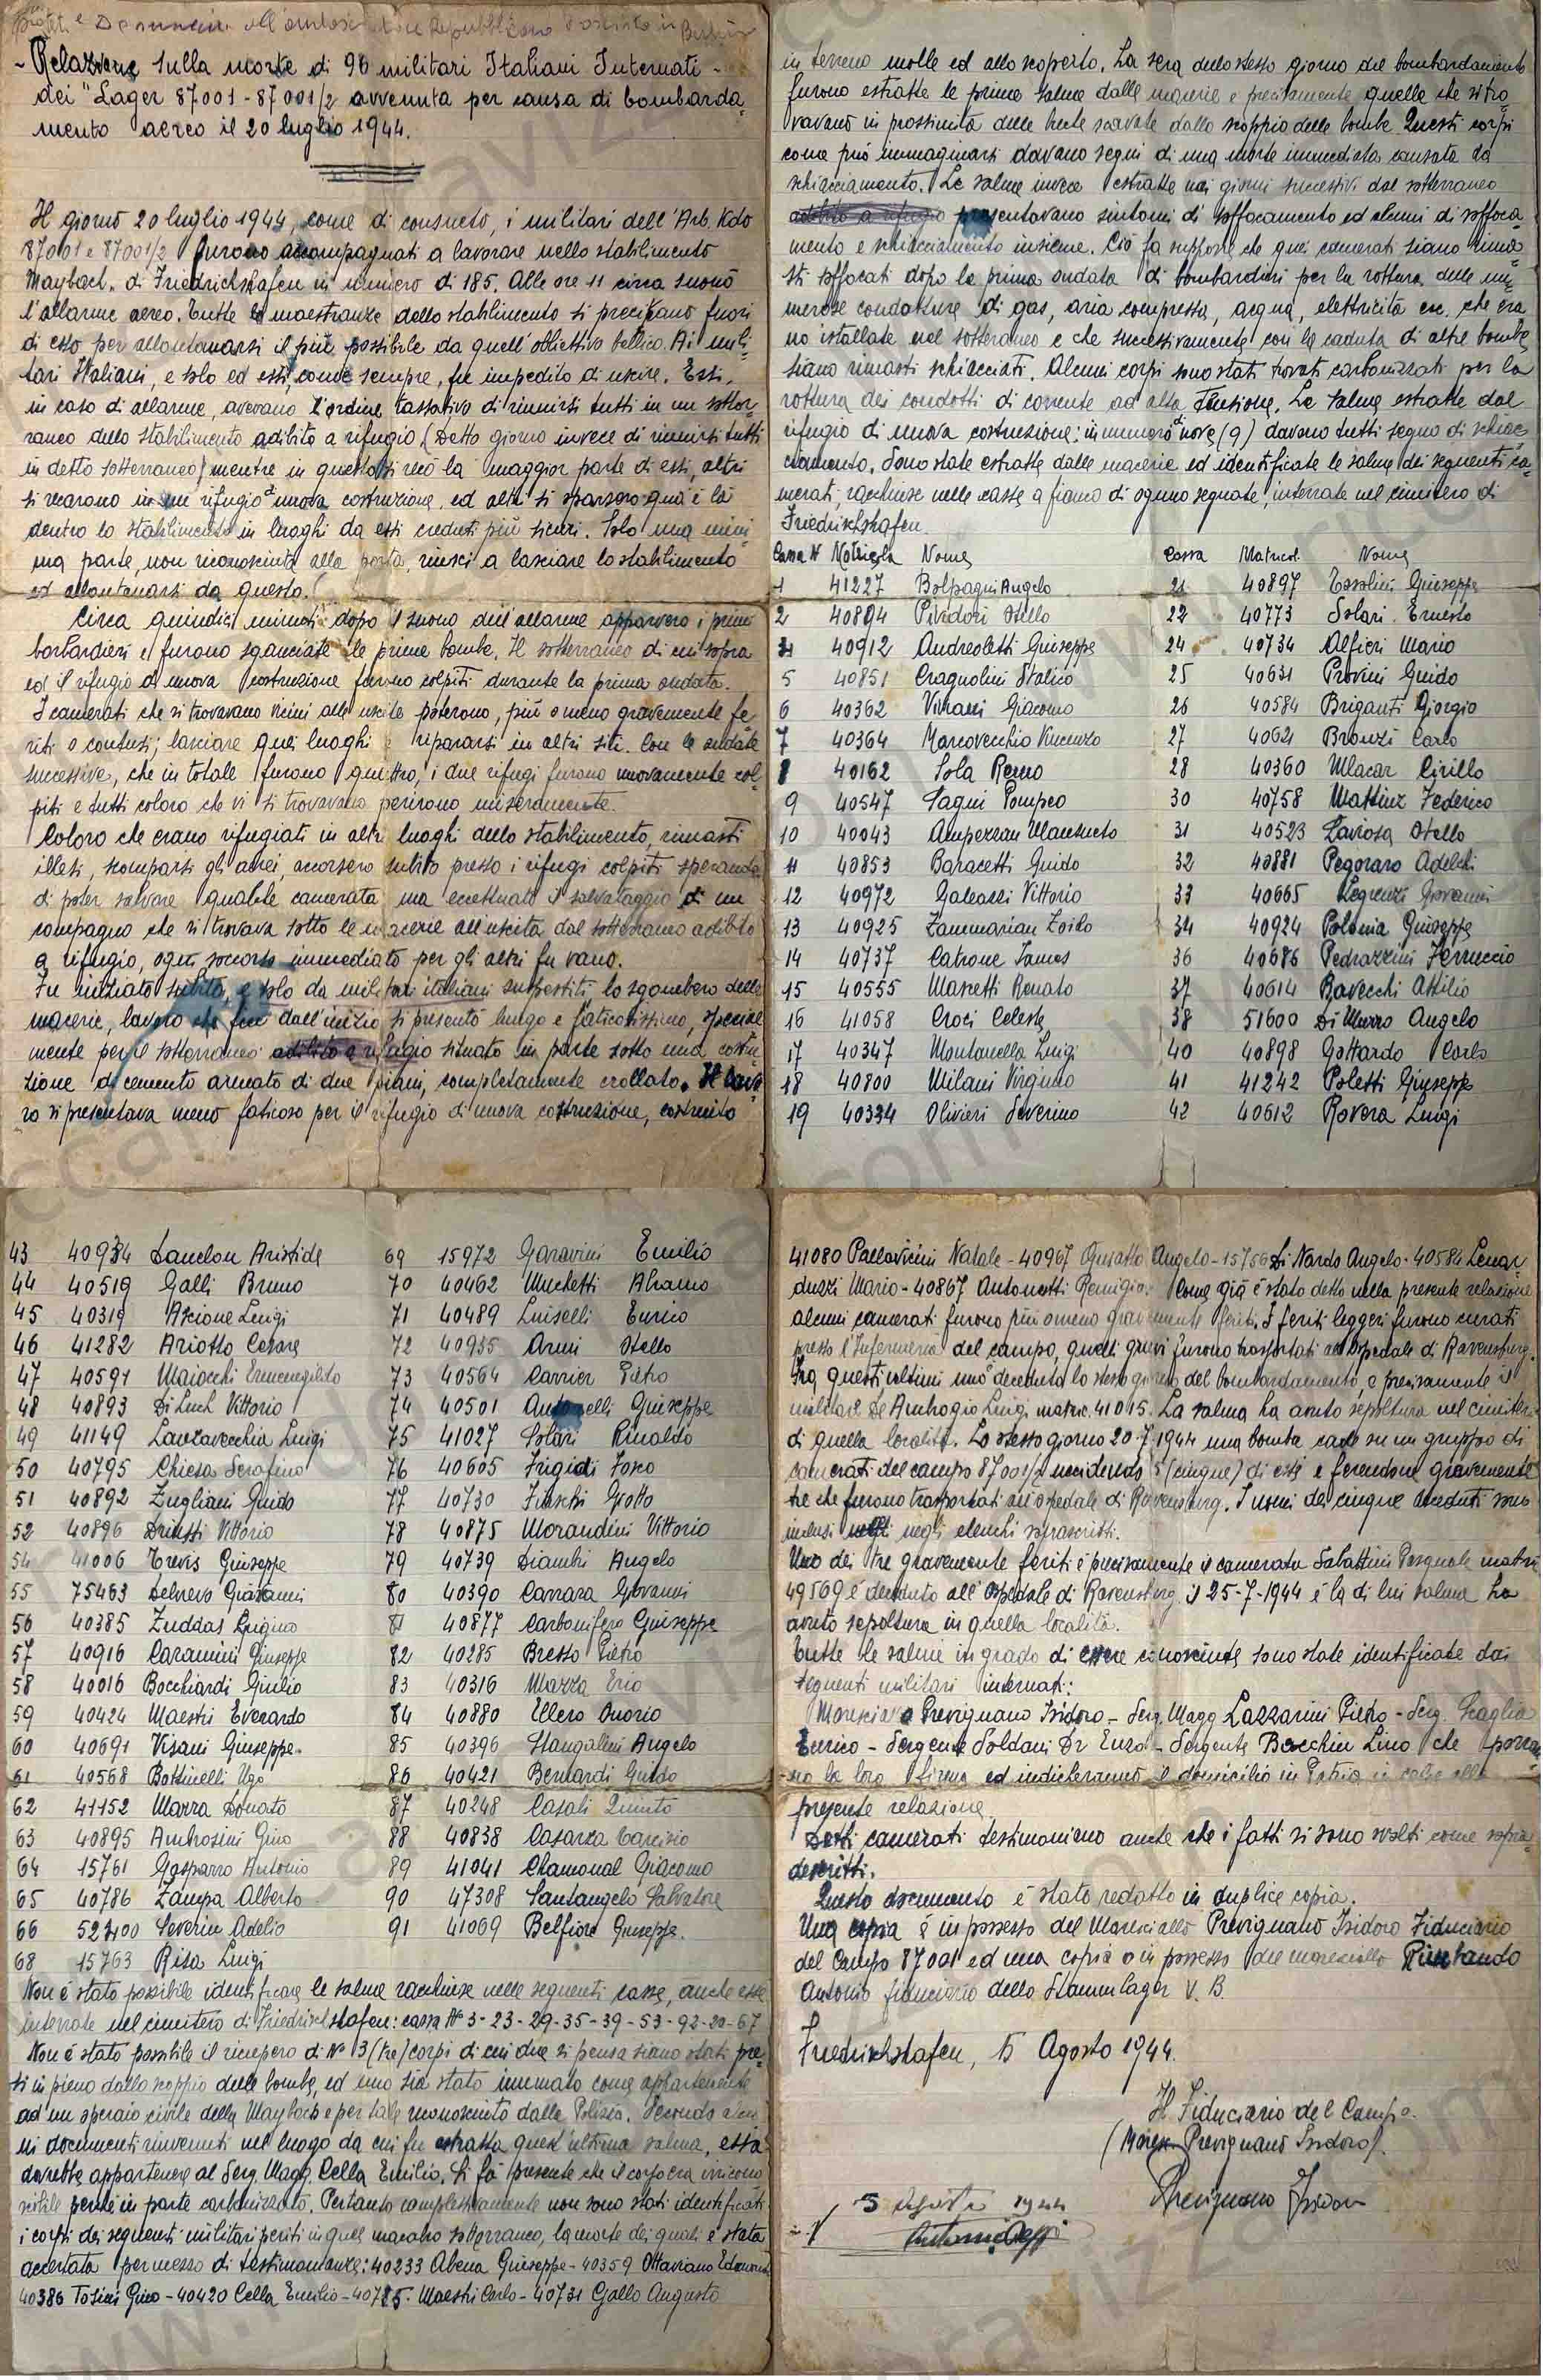 e Denuncia all'ambasciatore Repubblicano Fascista in Berlino
- Relazione sulla morte di 96 militari Italiani Internati -
dei "Lager 87001-87001/2 avvenuta per causa di bombarda=
mento aereo il 20 luglio 1944.
Il giorno 20 luglio 1944, come di consueto, i militari dell'Arb. Kdo
87001 e 87001/2 furono accompagnati a lavorare nello stabilimento
Maybach. di Friedrichshafen in numero di 185. Alle ore 11 circa suonò
l'allarme aereo. Tutte le maestranze dello stabilimento si precipitano fuori
di esso per allontanarsi il più possibile da quell'obbiettivo bellico. Ai mili=
tari Italiani, e solo ad essi, come sempre, fu impedito di uscire. Essi,
in caso di allarme, avevano l'ordine tassativo di riunirsi tutti in un sotter=
raneo dello stabilimento adibito a rifugio (Detto giorno invece di riunirsi tutti
in detto sotterraneo) mentre in questo si recò la maggior parte di essi, altri
si recarono in un rifugio di nuova costruzione ed altri si sparsero qua e là
dentro lo stabilimento in luoghi da essi creduti più sicuri. Solo una mini=
ma parte, non riconosciuta alla porta, riuscì a lasciare lo stabilimento
ed allontanarsi da questo.
Circa quindici minuti dopo il suono dell'allarme apparvero i primi
bombardieri e furono sganciate le prime bombe. Il sotterraneo di cui sopra
ed il rifugio di nuova costruzione furono colpiti durante la prima ondata.
I camerati che si trovavano vicini alle uscite poterono, più o meno gravemente fe=
riti o contusi, lasciare quei luoghi e ripararsi in altri siti. Con le ondate
successive, che in totale furono quattro, i due rifugi furono nuovamente col=
piti e tutti coloro che vi si trovavano perirono miseramente.
Coloro che erano rifugiati in altri luoghi dello stabilimento, rimasti
illesi, scomparsi gli aerei, accorsero subito presso i rifugi colpiti sperando
di poter salvare qualche camerata ma eccettuato il salvataggio di un
compagno che si trovava sotto le macerie all'uscita dal sotterraneo adibito
a rifugio, ogni soccorso immediato per gli altri fu vano.
Fu iniziato subito, e solo da militari italiani superstiti, lo sgombero delle
macerie, lavoro che fin dall'inizio si presentò lungo e faticosissimo, special=
mente per il sotterraneo adibito a rifugio situato in parte sotto una costru=
zione di cemento armato di due piani, completamente crollato. Il lavo=
ro si presentava meno faticoso per il rifugio di nuova costruzione, costruito
in terreno molle ed allo scoperto. La sera dello stesso giorno del bombardamento
furono estratte le prime salme dalle macerie e precisamente quelle che si tro=
vavano in prossimità delle buche scavate dallo scoppio delle bombe. Questi corpi
come può immaginarsi davano segni di una morte immediata causata da
schiacciamento. Le salme invece estratte nei giorni successivi dal sotterraneo
adibito a rifugio presentavano sintomi di soffocamento ed alcuni di soffoca=
mento e schiacciamento insieme. Ciò fa supporre che quei camerati siano rima=
sti soffocati dopo la prima ondata di bombardieri per la rottura delle nu=
merose condutture di gas, aria compressa, acqua, elettricità ecc. che era=
no istallate nel sotterraneo e che successivamente con la caduta di altre bombe
siano rimasti schiacciati. Alcuni corpi sono stati trovati carbonizzati per la
rottura dei condotti di corrente ad alta tensione. Le salme estratte dal
rifugio di nuova costruzione; in numero di nove (9) davano tutti segno di schiac=
ciamento. Sono state estratte dalle macerie ed identificate le salme dei seguenti ca=
merati, racchiuse nelle casse a fianco di ognuno segnate, interrate nel cimitero di
Friedrichshafen
Cassa N Matricola Nome Cassa Matricol. Nome
1 41227 Bolpagni Angelo 21 40897 Tosolini Giuseppe
2 40894 Pividori Otello 22 40773 Solari Ernesto
4 40912 Andreoletti Giuseppe 24 40734 Alfieri Mario
5 40851 Cragnolini Italico 25 40631 Provini Guido
6 40362 Viviani Giacomo 26 40584 Briganti Giorgio
7 40364 Marcovecchio Vincenzo 27 40621 Bronzi Carlo
8 40162 Sola Remo 28 40360 Mlacar Cirillo
9 40547 Sagui Pompeo 30 40758 Mattiuz Federico
10 40043 Amperran Mansueto 31 40523 Laviosa Otello
11 40853 Baracetti Guido 32 40881 Pegoraro Adelchi
12 40972 Galeassi Vittorio 33 40665 Legrenzi Giovanni
13 40925 Zammarian Zoilo 34 40924 Polonia Giuseppe
14 40737 Catrone James 36 40686 Pedrazzini Ferruccio
15 40555 Masetti Renato 37 40614 Ravecchi Attilio
16 41058 Croci Celeste 38 51600 Di Marzo Angelo
17 40347 Montanella Luigi 40 40898 Gottardo Carlo
18 40800 Milani Virginio 41 41242 Poletti Giuseppe
19 40334 Olivieri Severino 42 40612 Rovera Luigi
43 40934 Dandon Aristide 69 15972 Garavini Emilio
44 40519 Galli Bruno 70 40462 Muchetti Abramo
45 40319 Ascione Luigi 71 40489 Luiselli Enrico
46 41282 Ariotto Cesare 72 40935 Armi Otello
47 40591 Maiocchi Ermenegildo 73 40564 Carrier Pietro
48 40893 Di Luch Vittorio 74 40501 Antonelli Giuseppe
49 41149 Lavravecchia Luigi 75 41027 Solari Rinaldo
50 40795 Chiesa Serafino 76 40605 Frigidi Fosco
51 40892 Zugliani Guido 77 40730 Fiaschi Giotto
52 40896 Driussi Vittorio 78 40875 Morandini Vittorio
54 41006 Trevis Giuseppe 79 40739 Diambri Angelo
55 75463 Delnevo Giovanni 80 40390 Carrara Giovanni
56 40385 Zuddas Luigino 81 40877 Carbonifero Giuseppe
57 40916 Caramini Giuseppe 82 40285 Bresso Pietro
58 40016 Bocchiardi Giulio 83 40316 Mazza Erio
59 40424 Maestri Everardo 84 40880 Ellero Onorio
60 40691 Visani Giuseppe. 85 40396 Stangalini Angelo
61 40568 Bottinelli Ugo 86 40421 Bernardi Guido
62 41152 Marra Donato 87 40248 Casali Quinto
63 40895 Ambrosini Gino 88 40838 Casarza Tarcisio
64 15761 Gasparro Antonio 89 41041 Chamonal Giacomo
65 40786 Zampa Alberto 90 47308 Santangelo Salvatore
66 52400 Severin Adelio 91 41069 Belfiore Giuseppe.
68 15763 Risa Luigi
Non è stato possibile identificare le salme racchiuse nelle seguenti casse, anche esse
interrate nel cimitero di Friedrichshafen: cassa N° 3-23-29-35-39-53-92-20-67
Non è stato possibile il ricupero di N° 3 (tre) corpi di cui due si pensa siano stati pre=
si in pieno dallo scoppio delle bombe, ed uno sia stato inumato come appartenente
ad un operaio civile della Maybach e per tale riconosciuto dalla Polizia. Secondo alcu=
ni documenti rinvenuti nel luogo da cui fu estratta quest'ultima salma, essa
dovrebbe appartenere al Serg. Magg. Cella Emilio. Si fà presente che il corpo era irricono=
scibile perchè in parte carbonizzato. Pertanto complessivamente non sono stati identificati
i corpi dei seguenti militari periti in quel macabro sotterraneo, la morte dei quali è stata
accertata per mezzo di testimonianze: 40233 Abena Giuseppe - 40359 Ottaviano Edmondo
40386 Tosini Gino - 40420 Cella Emilio - 40785. Maestri Carlo - 40731 Gallo Augusto
41080 Pallavicini Natale - 40967 Angelo - 15756 Di Nardo Angelo - 40584 Lenar=
duzzi Mario - 40867 Antonutti Remigio. Come già è stato detto nella presente relazione
alcuni camerati furono più o meno gravemente feriti. I feriti leggeri furono curati
presso l'Infermeria del campo, quelli gravi furono trasportati all'Ospedale di Ravensburg.
Tra questi ultimi uno è deceduto lo stesso giorno del bombardamento, e precisamente il
militare De Ambrogio Luigi matric. 41015. La salma ha avuto sepoltura nel cimitero
di quella località. Lo stesso giorno 20-7-1944 una bomba cade su un gruppo di
camerati del campo 87001/2 uccidendo 5 (cinque) di essi e ferendone gravemente
tre che furono trasportati all'ospedale di Ravensburg. I nomi dei cinque deceduti sono
inclusi negli elenchi soprascritti.
Uno dei tre gravemente feriti è precisamente il camerata Sabattini Pasquale matric.
49569 è deceduto all'Ospedale di Ravensburg il 25-7-1944 e la di lui salma ha
avuto sepoltura in quella località.
Tutte le salme in grado di essere riconosciute sono state identificate dai
seguenti militari internati:
Maresciallo Prevignano Isidoro - Serg. Magg Lazzarini Pietro - Serg. Scaglia
Enrico - Sergente Soldani Dr Enzo - Sergente Bacchin Lino che porran=
no la loro firma ed indicheranno il domicilio in Patria in calce alla
presente relazione.
Detti camerati testimoniano anche che i fatti si sono svolti come sopra
descritti.
Questo documento è stato redatto in duplice copia.
Una copia è in possesso del Maresciallo Prevignano Isidoro Fiduciario
del Campo 87001 ed una copia è in possesso del maresciallo
Antonio fiduciario dello Stammlager V. B.
Friedrichshafen, 5 Agosto 1944.
Il Fiduciario del Campo.
(Maresc. Prevignano Isidoro).
5 Agosto 1944
Prevignano Isidoro